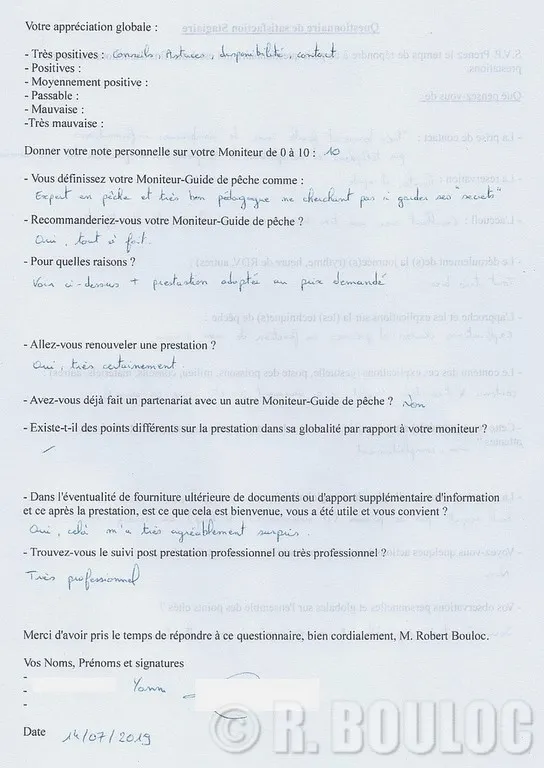 Votre appréciation globale :
- Très positives : Conseils, Astuces, disponibilité, contact
- Positives :
- Moyennement positive :
- Passable :
- Mauvaise :
-Très mauvaise :
Donner votre note personnelle sur votre Moniteur de 0 à 10 : 10
- Vous définissez votre Moniteur-Guide de pêche comme :
Expert en pêche et très bon pédagogue ne cherchant pas à garder ses "secrets"
- Recommanderiez-vous votre Moniteur-Guide de pêche ?
Oui, tout à fait.
- Pour quelles raisons ?
Voir ci-dessus + prestation adaptée au prix demandé
- Allez-vous renouveler une prestation ?
Oui, très certainement.
- Avez-vous déjà fait un partenariat avec un autre Moniteur-Guide de pêche ? Non
- Existe-t-il des points différents sur la prestation dans sa globalité par rapport à votre moniteur ?
/
- Dans l'éventualité de fourniture ultérieure de documents ou d'apport supplémentaire d'information
et ce après la prestation, est ce que cela est bienvenue, vous a été utile et vous convient ?
Oui, celà m'a très agréablement surpris.
- Trouvez-vous le suivi post prestation professionnel ou très professionnel ?
Très professionnel
Merci d'avoir pris le temps de répondre à ce questionnaire, bien cordialement, M. Robert Bouloc.
Vos Noms, Prénoms et signatures
- Yann
-
-
Date 14/07/2019
© R. BOULOC